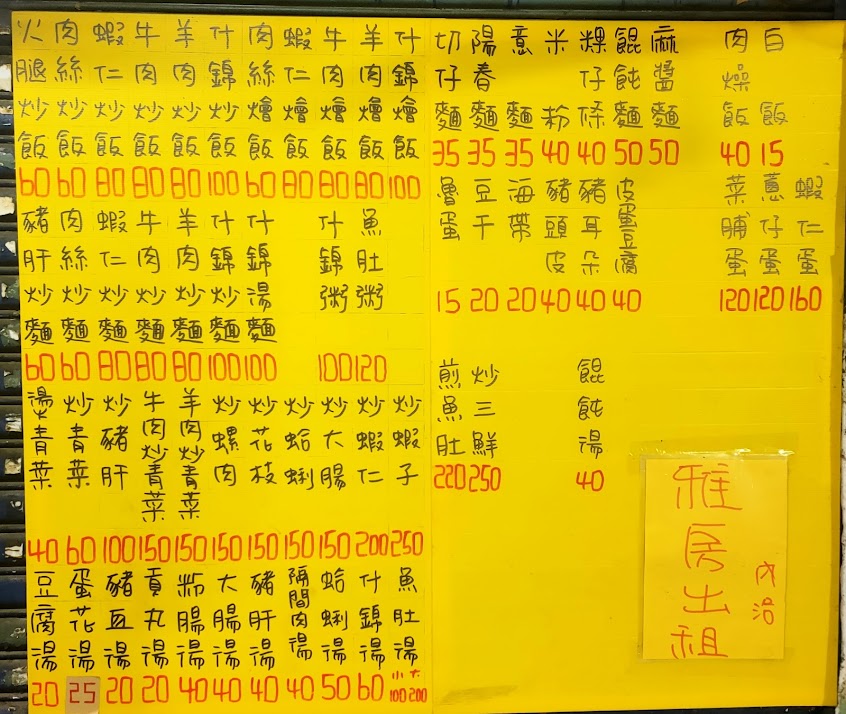 火腿炒飯 60
肉絲炒飯 60
蝦仁炒飯 80
牛肉炒飯 80
羊肉炒飯 80
什錦炒飯 100
肉絲燴飯 60
蝦仁燴飯 80
牛肉燴飯 80
羊肉燴飯 80
什錦燴飯 100
豬肝炒麵 60
肉絲炒麵 60
蝦仁炒麵 80
牛肉炒麵 80
羊肉炒麵 80
什錦炒麵 100
什錦湯麵 100
什錦粥 100
魚肚粥 120
燙青菜 40
炒青菜 60
炒豬肝 100
牛肉炒青菜 150
羊肉炒青菜 150
炒螺肉 150
炒花枝 150
炒蛤蜊 150
炒大腸 150
炒蝦仁 200
炒蝦子 250
豆腐湯 20
蛋花湯 25
豬血湯 20
貢丸湯 20
粉腸湯 40
大腸湯 40
豬肝湯 40
隔間肉湯 40
蛤蜊湯 50
什錦湯 60
魚肚湯 小100 大200
切仔麵 35
陽春麵 35
意麵 35
米粉 40
粿仔條 40
餛飩麵 50
麻醬麵 50
肉燥飯 40
白飯 15
魯蛋 15
豆干 20
海帶 20
豬頭皮 40
豬耳朵 40
皮蛋豆腐 40
菜脯蛋 120
蔥仔蛋 120
蝦仁蛋 160
煎魚肚 220
炒三鮮 250
餛飩湯 40
雅房出租
內洽